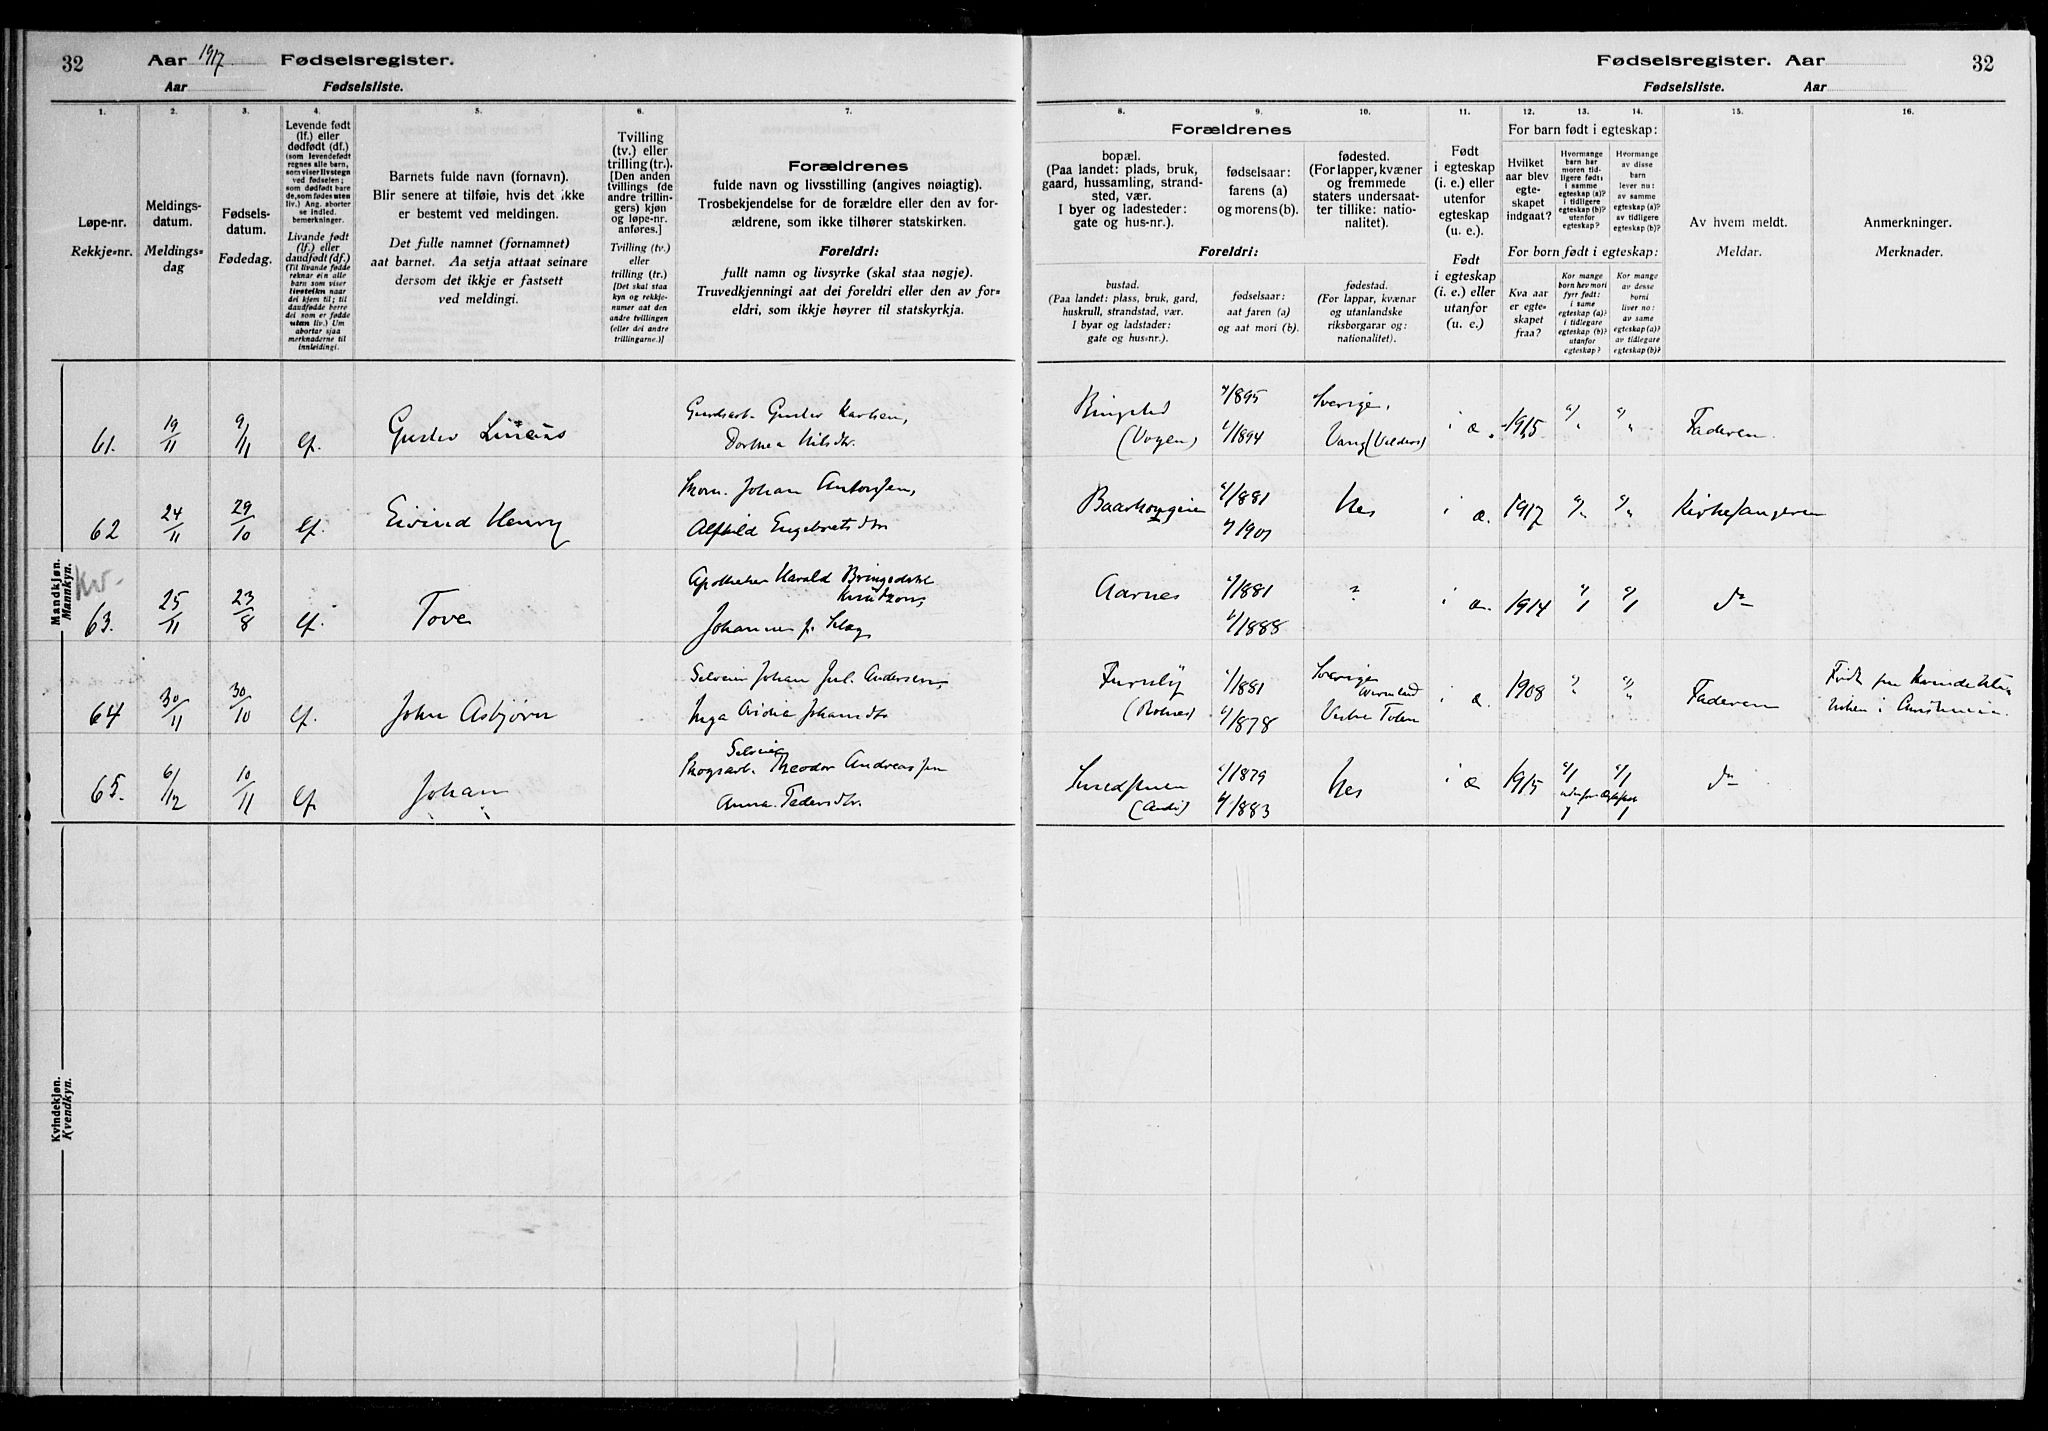 32 Aar 1917 Fødselsregister.
Aar Fødselsliste.
Fødselsregister. Aar 32
Fødselsliste. Aar
1. 2. 3. 4. 5. 6. 7.
Løpe-nr.
Rekkje-nr.
Meldings-
datum.
Meldings-
dag
Fødsels-
datum.
Fødedag.
Levende født
(lf.) eller
dødfødt (df.)
(som levendefødt
regnes alle barn,
som viser livstegn
ved fødselen;
som dødfødt bare
de, som fødes uten
liv.) Ang. aborter
se indled.
bemerkninger.
Livande født
(lf.) eller
daudfødt (df.)
(Til livande fødde
reknar ein alle
barn som viser
livsteikn naar
dei kjem til; til
daudfødde berre
dei som er fødde
utan liv.) Um
abortar sjaa
merknaderne til
innleidingi.
Barnets fulde navn (fornavn).
Blir senere at tilføie, hvis det ikke
er bestemt ved meldingen.
Det fulle namnet (fornamnet)
aat barnet. Aa setja attaat seinare
dersom det ikkje er fastsett
ved meldingi.
Tvilling
(tv.) eller
trilling (tr.).
[Den anden
tvillings (de
andre trillin-
gers) kjøn
og løpe-nr.
anføres.]
Tvilling (tv.)
eller
trilling (tr.)
[Det skal staa
kyn og rekkje-
numer aat den
andre tvillingen
(eller dei andre
trillingarne.)]
Forældrenes
fulde navn og livsstilling (angives nøiagtig).
Trosbekjendelse for de forældre eller den av for-
ældrene, som ikke tilhører statskirken.
Foreldri:
fullt namn og livsyrke (skal staa nøgje).
Truvedkjenningi aat dei foreldri eller den av for-
eldri, som ikkje høyrer til statskyrkja.
8. 9. 10. 11. 12. 13. 14. 15. 16.
Forældrenes
bopæl.
(Paa landet: plads, bruk,
gaard, hussamling, strand-
sted, vær.
I byer og ladesteder:
gate og hus-nr.).
fødselsaar:
farens (a)
og morens (b).
fødested.
(For lapper, kvæner
og fremmede
staters undersaat-
ter tillike: natio-
nalitet).
Foreldri:
bustad.
(Paa landet: plass, bruk, gard,
huskrull, strandstad, vær.
I byar og ladstader:
gate og hus-nr.).
fødselsaar:
aat faren (a)
og aat mori (b).
fødestad.
(For lappar, kvænar
og utanlandske
riksborgarar og:
nationalitet).
Født
i egteskap
(i. e.) eller
utenfor
egteskap
(u. e.).
Født
i egteskap
(i. e.) eller
utanfor
(u. e.)
For barn født i egteskap:
Hvilket
aar blev
egte-
skapet
indgaat?
Hvormange
barn har
moren tid-
ligere født:
i samme
egteskap (a)?
i tidligere
egteskap (b)?
utenfor
egteskap?
Hvormange
av disse
barn
lever nu:
av samme
egteskap (a)?
av tidligere
egteskap (b)?
For born født i egteskap:
Kva aar
er egte-
skapet
fraa?
Kor mange
born hev mori
fyrr født:
i same
egteskap (a)?
i tidlegare
egteskap (b)?
utanfor
egteskap?
Kor mange
av desse
borni
liver no:
av same
egteskap (a)?
av tidlegare
egteskap (b)?
Av hvem meldt.
Meldar.
Anmerkninger.
Merknader.
Mandkjøn.
Mannkyn.
61. 19/11 9/11 lf. Gustav Karlsen,
Dorthea Nilsdtr.
Ringstad a/1895 Sverige,
(Vogen) b/1894 Vang (Valdres) i æ. 1915 Faderen.
62 24/11 29/10 lf. Eivind Henry Johan Antonsen,
Alfhild Engebretsdtr
a/1881 Nes i æ. 1917 Kirkesangeren
b/1901
Kv-
63. 25/11 23/8 lf. Tove Apotheker Harald
Knudtzon,
Johanne f.
Aarnes a/1881 i æ. 1914 a/1 a/1 do
b/1888
64 30/11 30/10 lf. John Asbjørn Johan Jul. Andersen,
Inga
Furuly a/1881 Sverige
b/1878 Vestre Toten i æ. 1908 Faderen Født paa Kvindeklin
iken i Christiania.
65. 6/12 10/11 lf. Johan Selveier
Skogsarb. Theodor Andreassen
Anna Pedersdtr.
a/1879 Nes i æ 1915 a/1 a/1 do
b/1883 udenfor ægteskab
1 1
Kvindekjøn.
Kvendkyn.